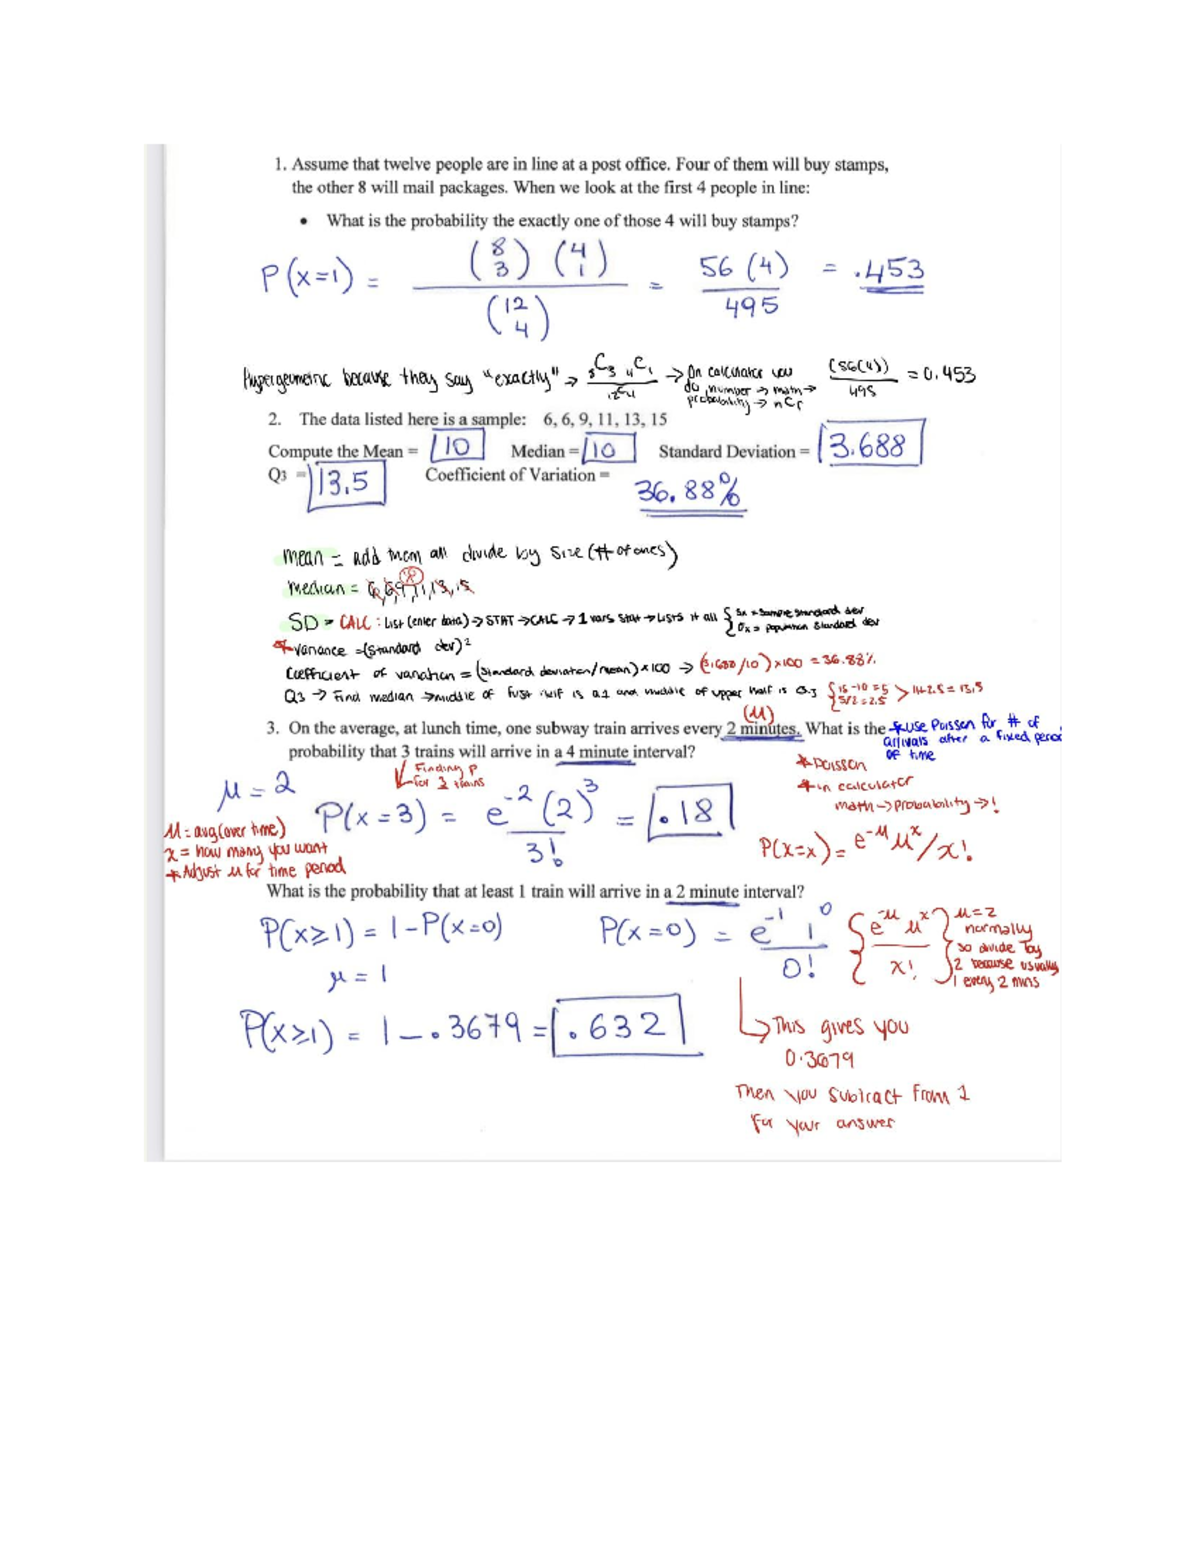 1. Assume that twelve people are in line at a post office. Four of them will buy stamps,
the other 8 will mail packages. When we look at the first 4 people in line:
• What is the probability the exactly one of those 4 will buy stamps?
P(x=1) = (8 3) (4 1) / (12 4) = 56 (4) / 495 = .453
Hypergeometric because they say "exactly" → 8C3 4C1 / 12C4 → On calculator you do number → math → probability → nCr (56(4)) / 495 = 0.453
2. The data listed here is a sample: 6, 6, 9, 11, 13, 15
Compute the Mean = 10 Median = 10 Standard Deviation = 3.688
Q3 = 13.5 Coefficient of Variation = 36.88%
mean = add them all divide by size (# of ones)
median = 6, 6, 9, 11, 13, 15
SD → CALC : List (enter data) → STAT → CALC → 1 vars stat → Lists it all { Sx = sample standard dev
σx = population standard dev
* variance = (standard dev)²
Coefficient of variation = (standard deviation/mean) × 100 → (3.688/10) × 100 = 36.88%
Q3 → Find median → middle of first half is Q1 and middle of upper half is Q3 { 15-10 = 5
5/2 = 2.5 > 11+2.5 = 13.5
(μ)
3. On the average, at lunch time, one subway train arrives every 2 minutes. What is the
probability that 3 trains will arrive in a 4 minute interval?
* use Poisson for # of
arrivals after a fixed period
of time
Finding P
for 3 trains
* Poisson
* in calculator
math → probability → !
μ = 2
P(x = 3) = e^-2 (2)^3 / 3! = .18
P(x=x) = e^-μ μ^x / x!
μ = avg (over time)
x = how many you want
* Adjust μ for time period
What is the probability that at least 1 train will arrive in a 2 minute interval?
P(x≥1) = 1 - P(x=0) P(x=0) = e^-1 1^0 / 0! { e^-μ μ^x / x! }
μ=2
normally
so divide by
2 because usually
1 every 2 mins
μ = 1
P(x≥1) = 1 - .3679 = .632
→ This gives you
0.3679
Then you subtract from 1
for your answer